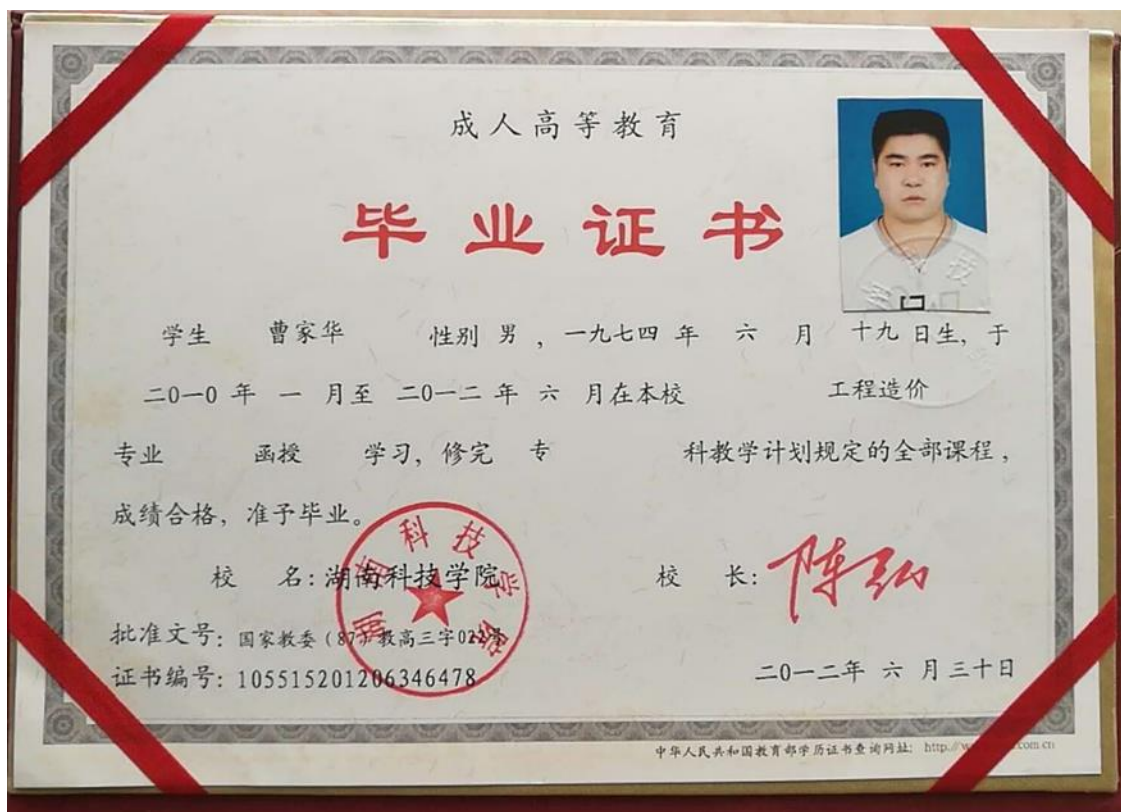 成人高等教育
毕业证书
学生 曹家华 性别 男 , 一九七四 年 六 月 十九 日生, 于
二0一0 年 一 月至 二0一二 年 六 月在本校 工程造价
专业 函授 学习, 修完 专 科教学计划规定的全部课程,
成绩合格, 准予毕业。
校 名: 湖南科技学院 校 长: 陈弘
湖南科技学院
批准文号: 国家教委(87)教高三字022号
证书编号: 105515201206346478
二0一二年 六 月三十日
中华人民共和国教育部学历证书查询网址: http://w com.cn